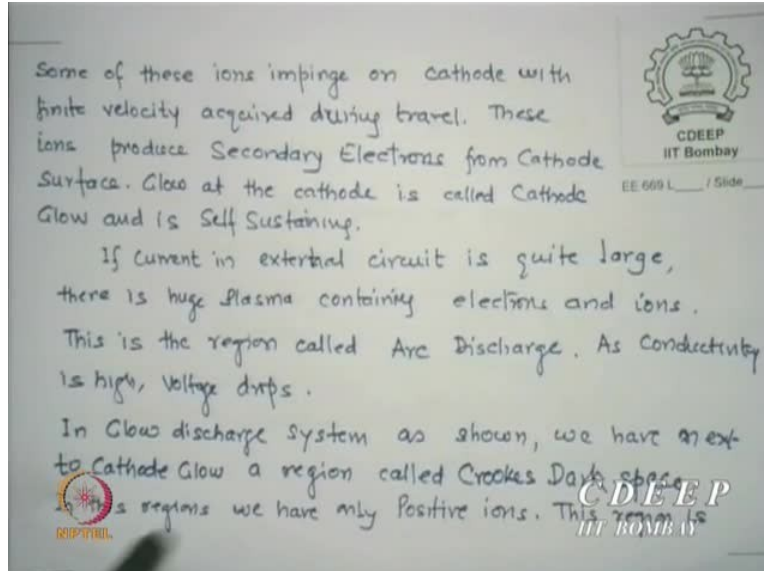 Some of these ions impinge on cathode with
finite velocity acquired during travel. These
ions produce Secondary Electrons from Cathode
Surface. Glow at the cathode is called Cathode
Glow and is Self Sustaining.
If Current in external circuit is quite large,
there is huge Plasma containing electrons and ions.
This is the region called Arc Discharge. As Conductivity
is high, Voltage drops.
In Glow discharge system as shown, we have next
to Cathode Glow a region called Crookes Dark space
In this regions we have only Positive ions. This region is
CDEEP
IIT Bombay
EE 669 L____ / Slide____
NPTEL
CDEEP
IIT BOMBAY